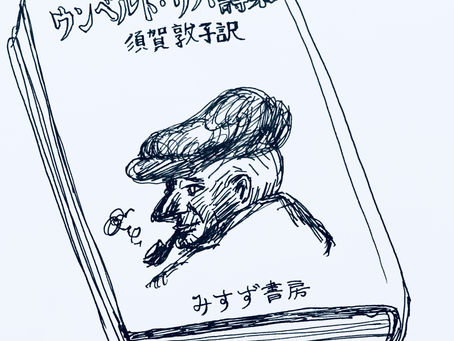 ウンベルト・サバ詩集
須賀敦子訳
みすず書房